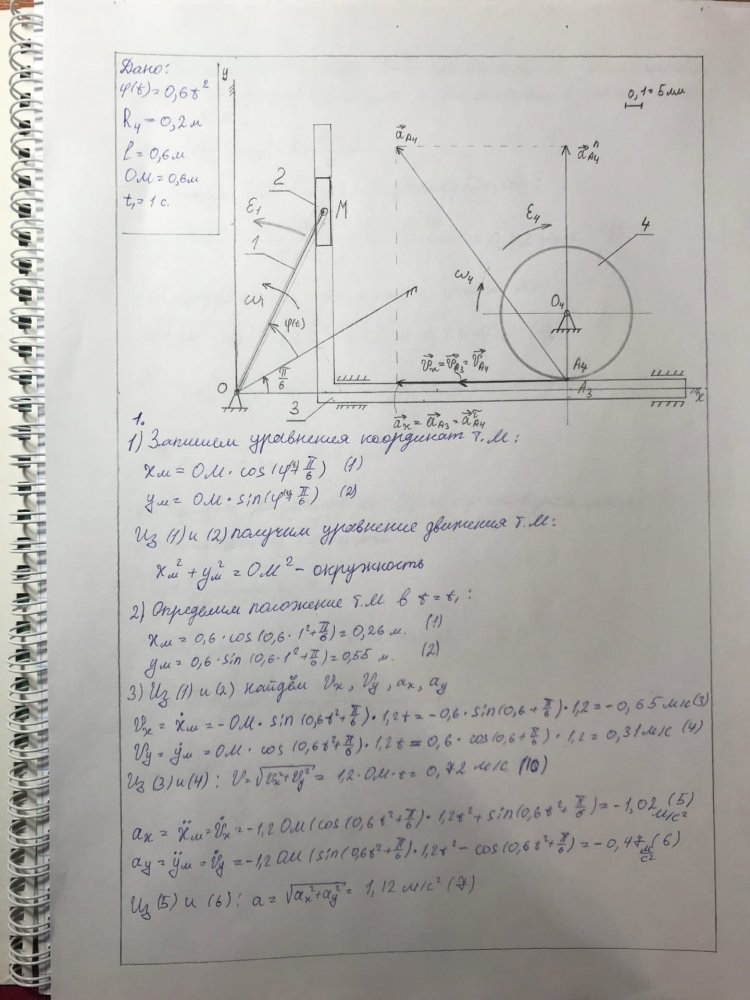 Дано:
φ(t)=0,6t²
R₄=0,2м
l=0,6м
OM=0,6м
t₁=1 с.
y
0,1=5мм
a⃗A₄
a⃗ⁿA₄
2
M
ε₁
1
ω₁
φ(t)
π/6
O
3
ε₄
4
ω₄
O₄
v⃗x=v⃗A₃=v⃗A₄
A₄
A₃
x
a⃗x=a⃗A₃=a⃗ᵗA₄
1.
1) Запишем уравнения координат т.М:
xм=OM·cos(φ+π/6) (1)
yм=OM·sin(φ+π/6) (2)
Из (1) и (2) получим уравнение движения т.М:
xм²+yм²=OM² - окружность
2) Определим положение т.М в t=t₁:
xм=0,6·cos(0,6·1²+π/6)=0,26 м. (1)
yм=0,6·sin(0,6·1²+π/6)=0,55 м. (2)
3) Из (1) и (2) найдём Vx, Vy, ax, ay
Vx=ẋм=-OM·sin(0,6t²+π/6)·1,2t=-0,6·sin(0,6+π/6)·1,2=-0,65м/с(3)
Vy=ẏм=OM·cos(0,6t²+π/6)·1,2t=0,6·cos(0,6+π/6)·1,2=0,31м/с (4)
Из (3) и (4): V=√Vx²+Vy²=1,2·OM·t=0,72 м/с (10)
ax=ẍм=V̇x=-1,2OM(cos(0,6t²+π/6)·1,2t²+sin(0,6t²+π/6)=-1,02 м/с² (5)
ay=ÿм=V̇y=-1,2OM(sin(0,6t²+π/6)·1,2t²-cos(0,6t²+π/6)=-0,47 м/с² (6)
Из (5) и (6): a=√ax²+ay²=1,12м/с² (7)